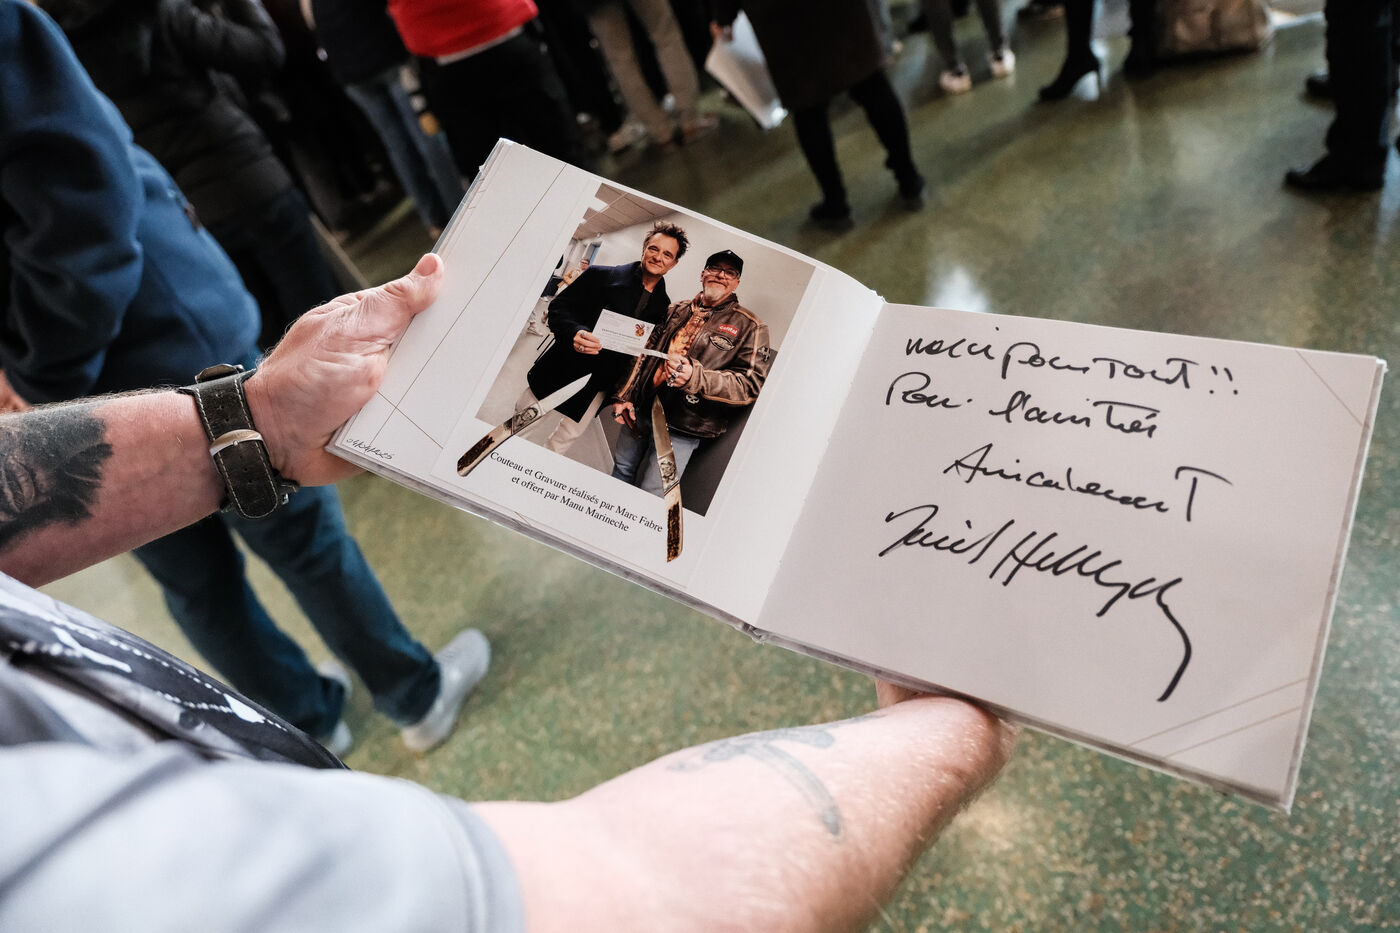 Couteau et Gravure réalisés par Marc Fabre
et offert par Manu Marineche
merci pour Tout !!
Pour l'amitié
Amicalement